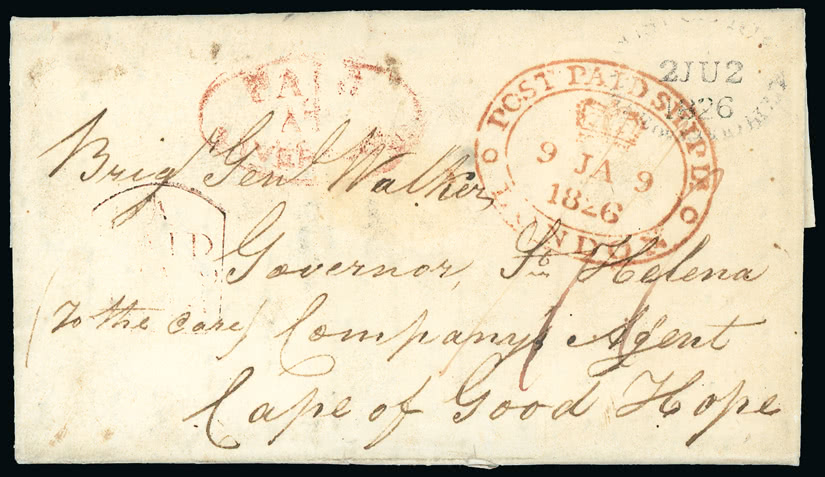 PAID
AT
POST PAID SHIP Lr
LONDON
9 JA 9
1826
2JU2
1826
Brig Genl Walker
Governor, St Helena
(To the care) Company's Agent
Cape of Good Hope